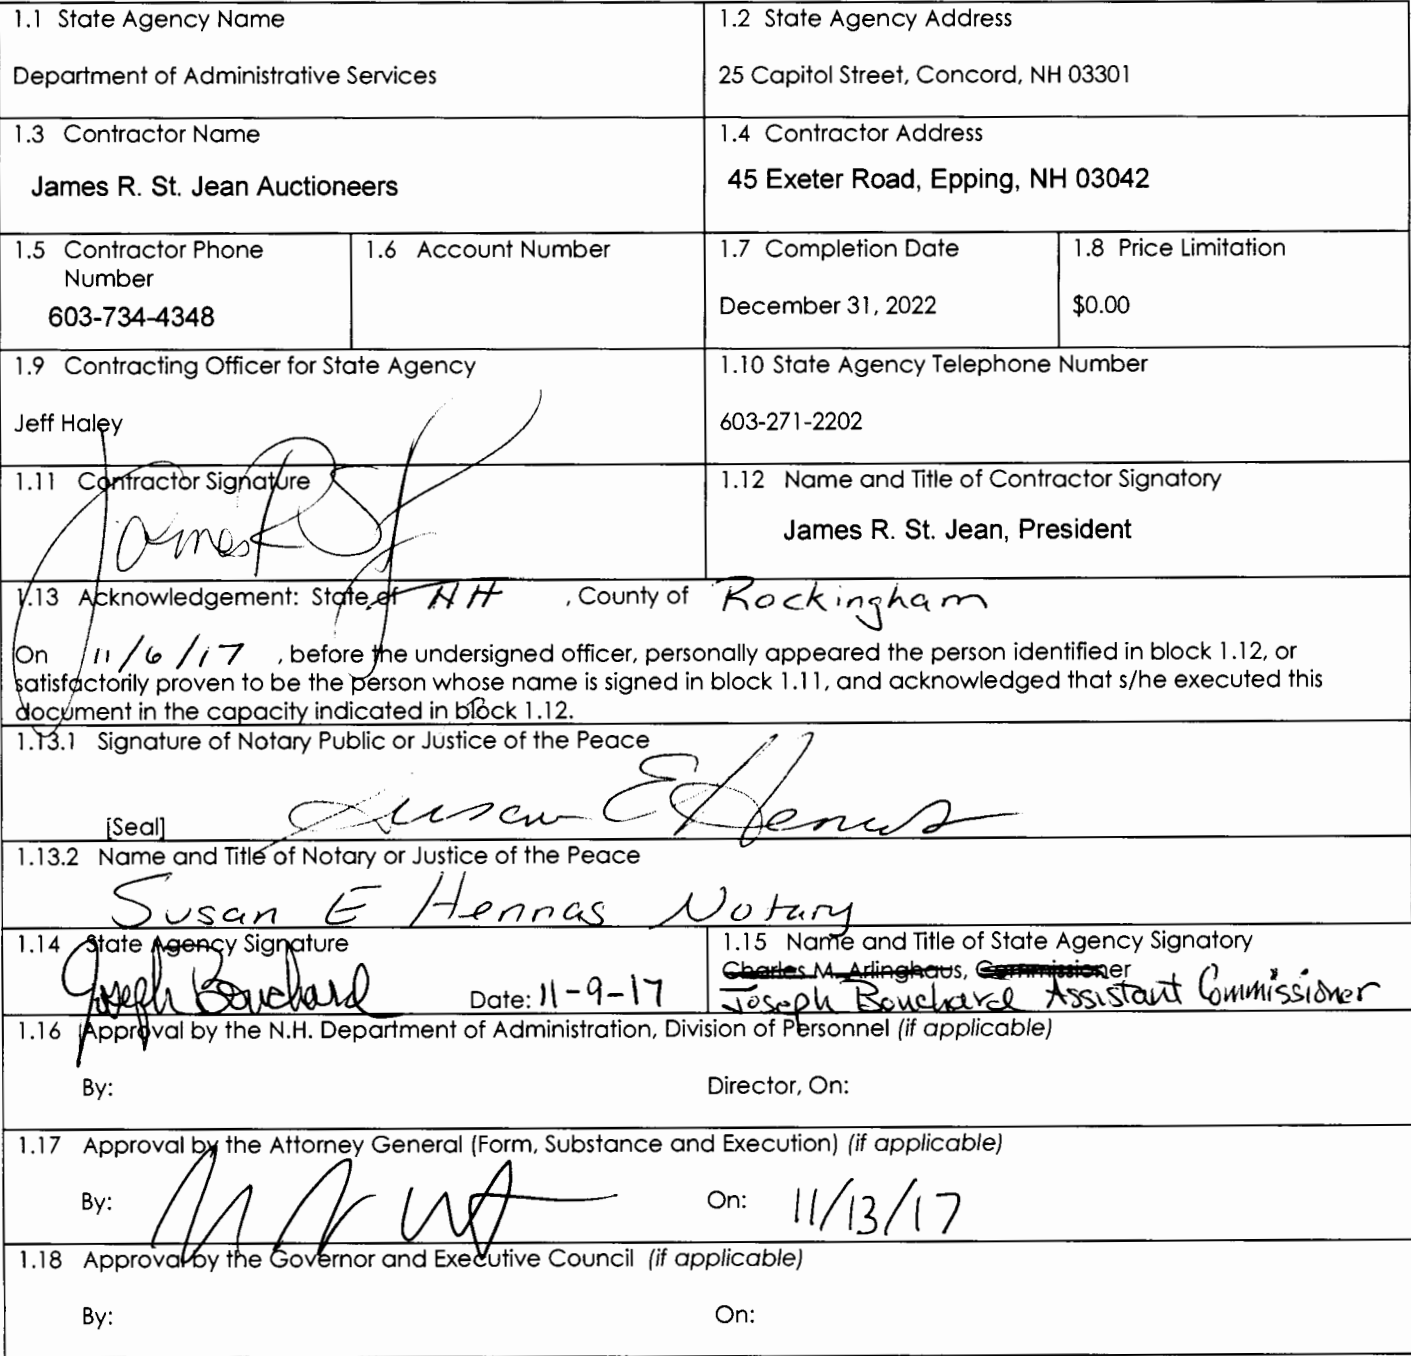 1.1 State Agency Name
Department of Administrative Services
1.2 State Agency Address
25 Capitol Street, Concord, NH 03301
1.3 Contractor Name
James R. St. Jean Auctioneers
1.4 Contractor Address
45 Exeter Road, Epping, NH 03042
1.5 Contractor Phone
Number
603-734-4348
1.6 Account Number
1.7 Completion Date
December 31, 2022
1.8 Price Limitation
$0.00
1.9 Contracting Officer for State Agency
Jeff Haley
1.10 State Agency Telephone Number
603-271-2202
1.11 Contractor Signature
James R St J
1.12 Name and Title of Contractor Signatory
James R. St. Jean, President
1.13 Acknowledgement: State of NH , County of Rockingham
On 11/6/17 , before the undersigned officer, personally appeared the person identified in block 1.12, or
satisfactorily proven to be the person whose name is signed in block 1.11, and acknowledged that s/he executed this
document in the capacity indicated in block 1.12.
1.13.1 Signature of Notary Public or Justice of the Peace
Susan E Hennas
[Seal]
1.13.2 Name and Title of Notary or Justice of the Peace
Susan E Hennas Notary
1.14 State Agency Signature
Joseph Bouchard Date: 11-9-17
1.15 Name and Title of State Agency Signatory
Charles M. Arlinghaus, Commissioner
Joseph Bouchard Assistant Commissioner
1.16 Approval by the N.H. Department of Administration, Division of Personnel (if applicable)
By: Director, On:
1.17 Approval by the Attorney General (Form, Substance and Execution) (if applicable)
By: On: 11/13/17
1.18 Approval by the Governor and Executive Council (if applicable)
By: On: